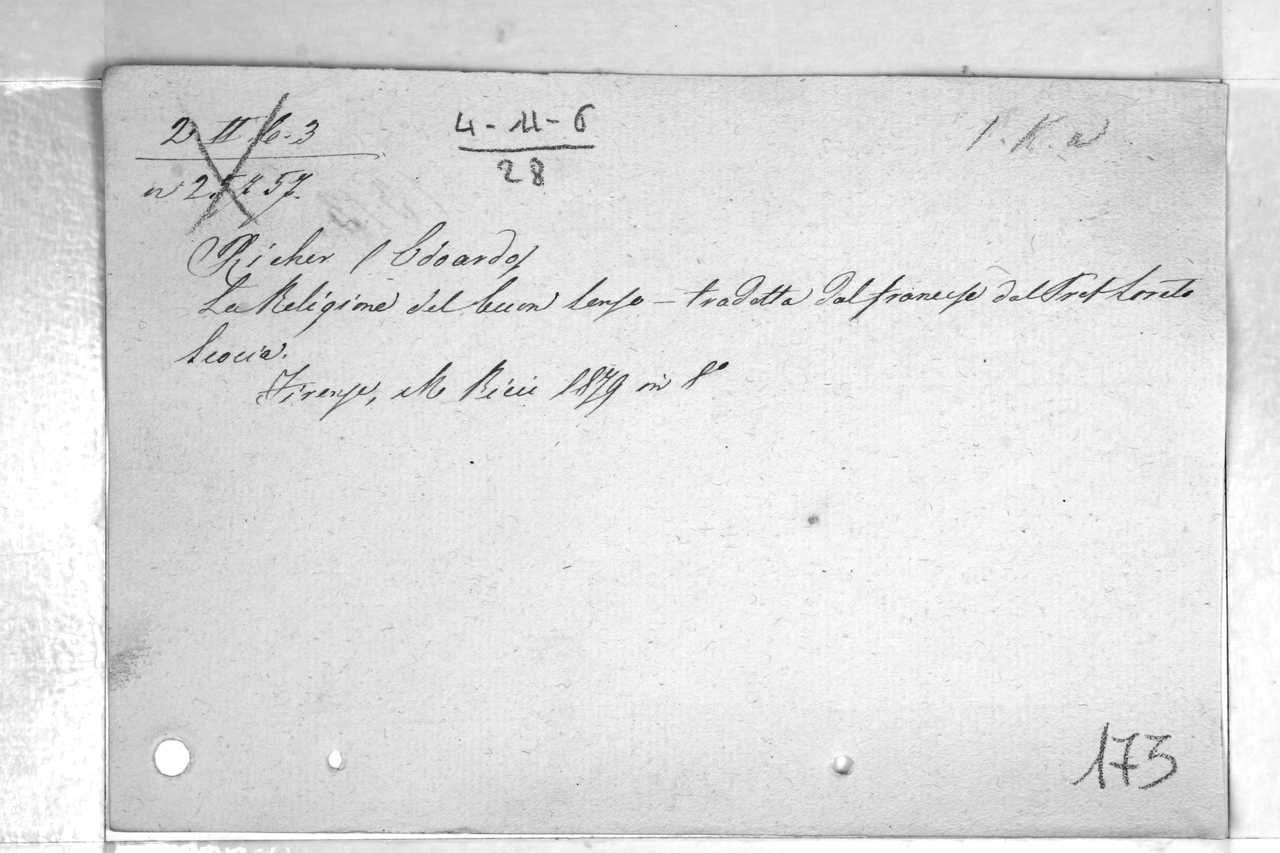 2 II 6-3
4-11-6
28
1. K. a
Richer (Edoardo)
La Religione del buon senso - tradotta dal francese dal Prof Loreto
Scocia.
Firenze, M Ricci 1879 in 8º
173